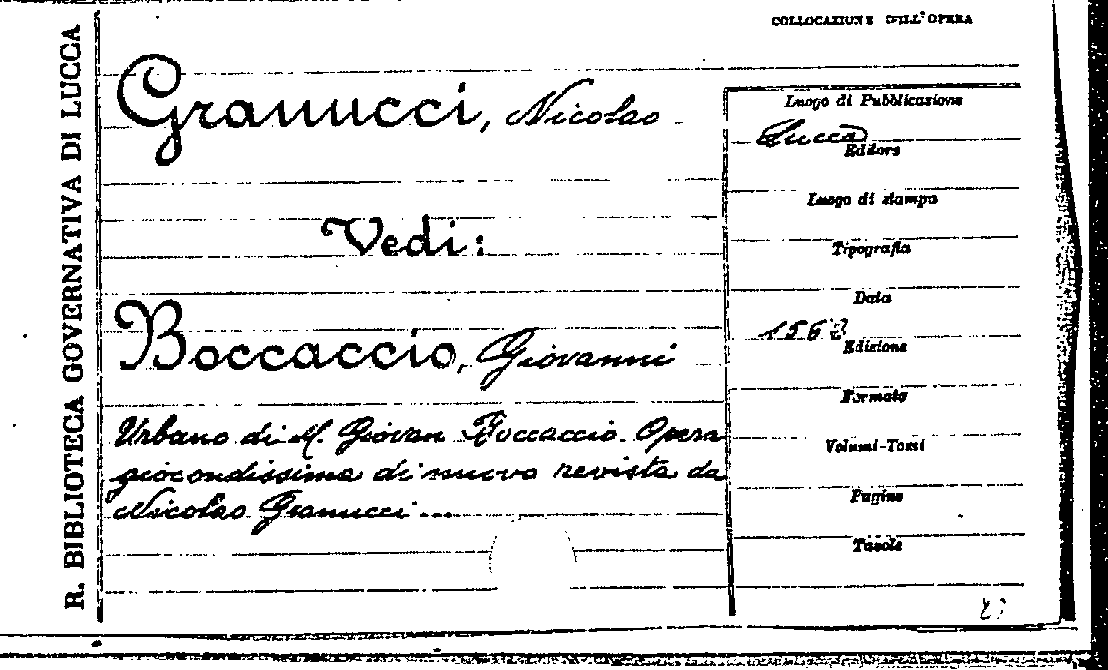 R. BIBLIOTECA GOVERNATIVA DI LUCCA
COLLOCAZIONE DELL'OPERA
Granucci, Nicolao
Vedi:
Boccaccio, Giovanni
Urbano di M. Giovan Boccaccio. Opera
giocondissima di nuovo revista da
Nicolao Granucci...
Luogo di Pubblicazione
Lucca
Editore
Luogo di stampa
Tipografia
Data
Edizione
Formato
Volumi-Tomi
Pagine
Tavole